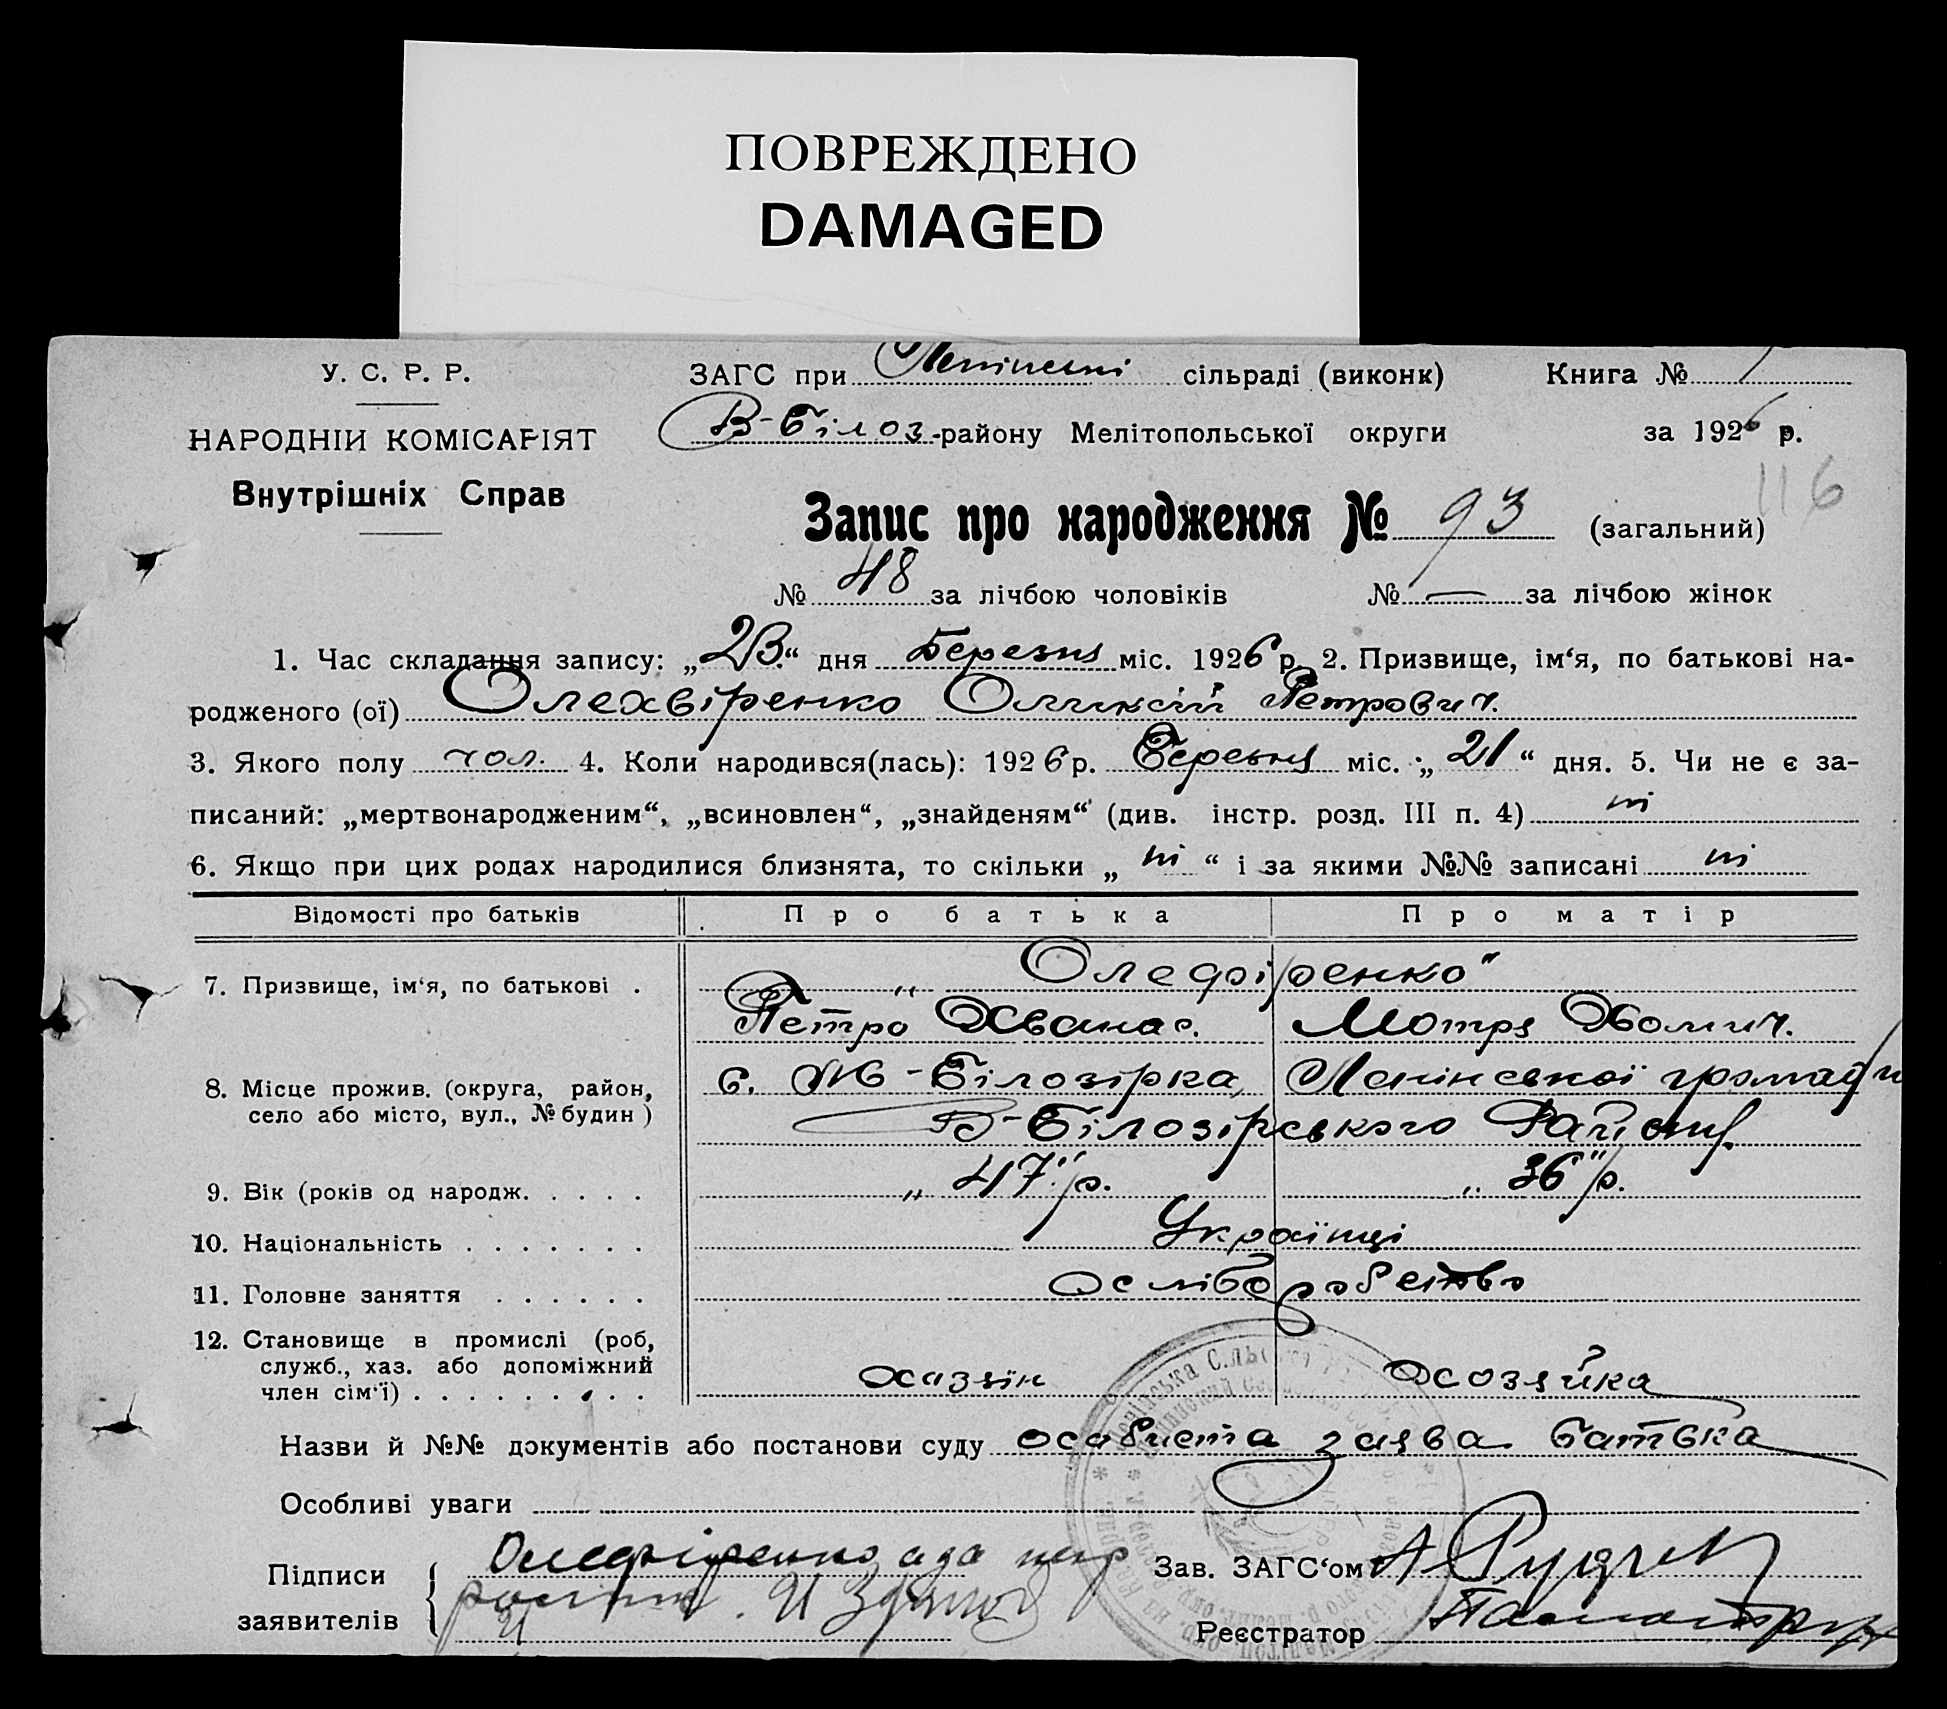 ПОВРЕЖДЕНО
DAMAGED
У. С. Р. Р.
ЗАГС при Ленінські сільраді (виконк) Книга № 1
НАРОДНІЙ КОМІСАРІЯТ
В-Білоз-району Мелітопольської округи за 1926 р.
116
Внутрішніх Справ
Запис про народження № 93 (загальний)
№ 48 за лічбою чоловіків № — за лічбою жінок
1. Час складання запису: „23“ дня Березня міс. 1926 р. 2. Призвище, ім‘я, по батькові на-
родженого (ої) Олехвіренко Оликсій Петрович.
3. Якого полу чол. 4. Коли народився(лась): 1926 р. Березня міс. „21“ дня. 5. Чи не є за-
писаний: „мертвонародженим“, „всиновлен“, „знайденям“ (див. інстр. розд. III п. 4) ні
6. Якщо при цих родах народилися близнята, то скільки „ні“ і за якими №№ записані ні
Відомості про батьків Про батька Про матір
7. Призвище, ім‘я, по батькові . „Олефіренко“
Петро Хванас. Мотря Хомич.
8. Місце прожив. (округа, район, с. М-Білозірка, Ленінської громади
село або місто, вул., № будин ) В-Білозірського Району.
9. Вік (років од народж. . . . . „47“ р. „36“ р.
10. Національність . . . . . . . Українці
11. Головне заняття . . . . . .
12. Становище в промислі (роб,
служб., хаз. або допоміжний
член сім‘ї) . . . . . . . . . хазяїн хозяйка
Назви й №№ документів або постанови суду особиста заява батька
Особливі уваги
Підписи Олефіренко Зав. ЗАГС‘ом
заявителів Реєстратор